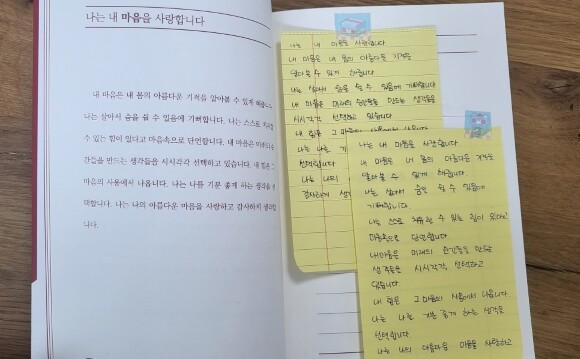 나는 내 마음을 사랑합니다
내 마음은 내 몸의 아름다운 기적을 알아볼 수 있게 해줍니다.
나는 살아서 숨을 쉴 수 있음에 기뻐합니다. 나는 스스로 치유할
수 있는 힘이 있다고 마음속으로 단언합니다. 내 마음은 미래의 순
간들을 만드는 생각들을 시시각각 선택하고 있습니다. 내 힘은 그
마음의 사용에서 나옵니다. 나는 나를 기분 좋게 하는 생각을 선
택합니다. 나는 나의 아름다운 마음을 사랑하고 감사하게 생각합
니다.
나는 내 마음을 사랑합니다
내 마음은 내 몸의 아름다운 기적을
알아볼 수 있게 해줍니다
나는 살아서 숨을 쉴 수 있음에 기뻐합니다
내 마음은 미래의 순간들을 만드는 생각들을
시시각각 선택하고 있습니다
내 힘은 그 마음의 사용에서 나옵니다
나는 나를 기
선택합니다
나는 나의
감사하게 생
나는 내 마음을 사랑합니다.
내 마음은 내 몸의 아름다운 기적을
알아볼 수 있게 해줍니다
나는 살아서 숨을 쉴 수 있음에
기뻐합니다.
나는 스스로 치유할 수 있는 힘이 있다고
마음속으로 단언합니다.
내 마음은 미래의 순간들을 만드는
생각들을 시시각각 선택하고
있습니다
내 힘은 그 마음의 사용에서 나옵니다.
나는 나를 기분 좋게 하는 생각을
선택합니다.
나는 나의 아름다운 마음을 사랑하고